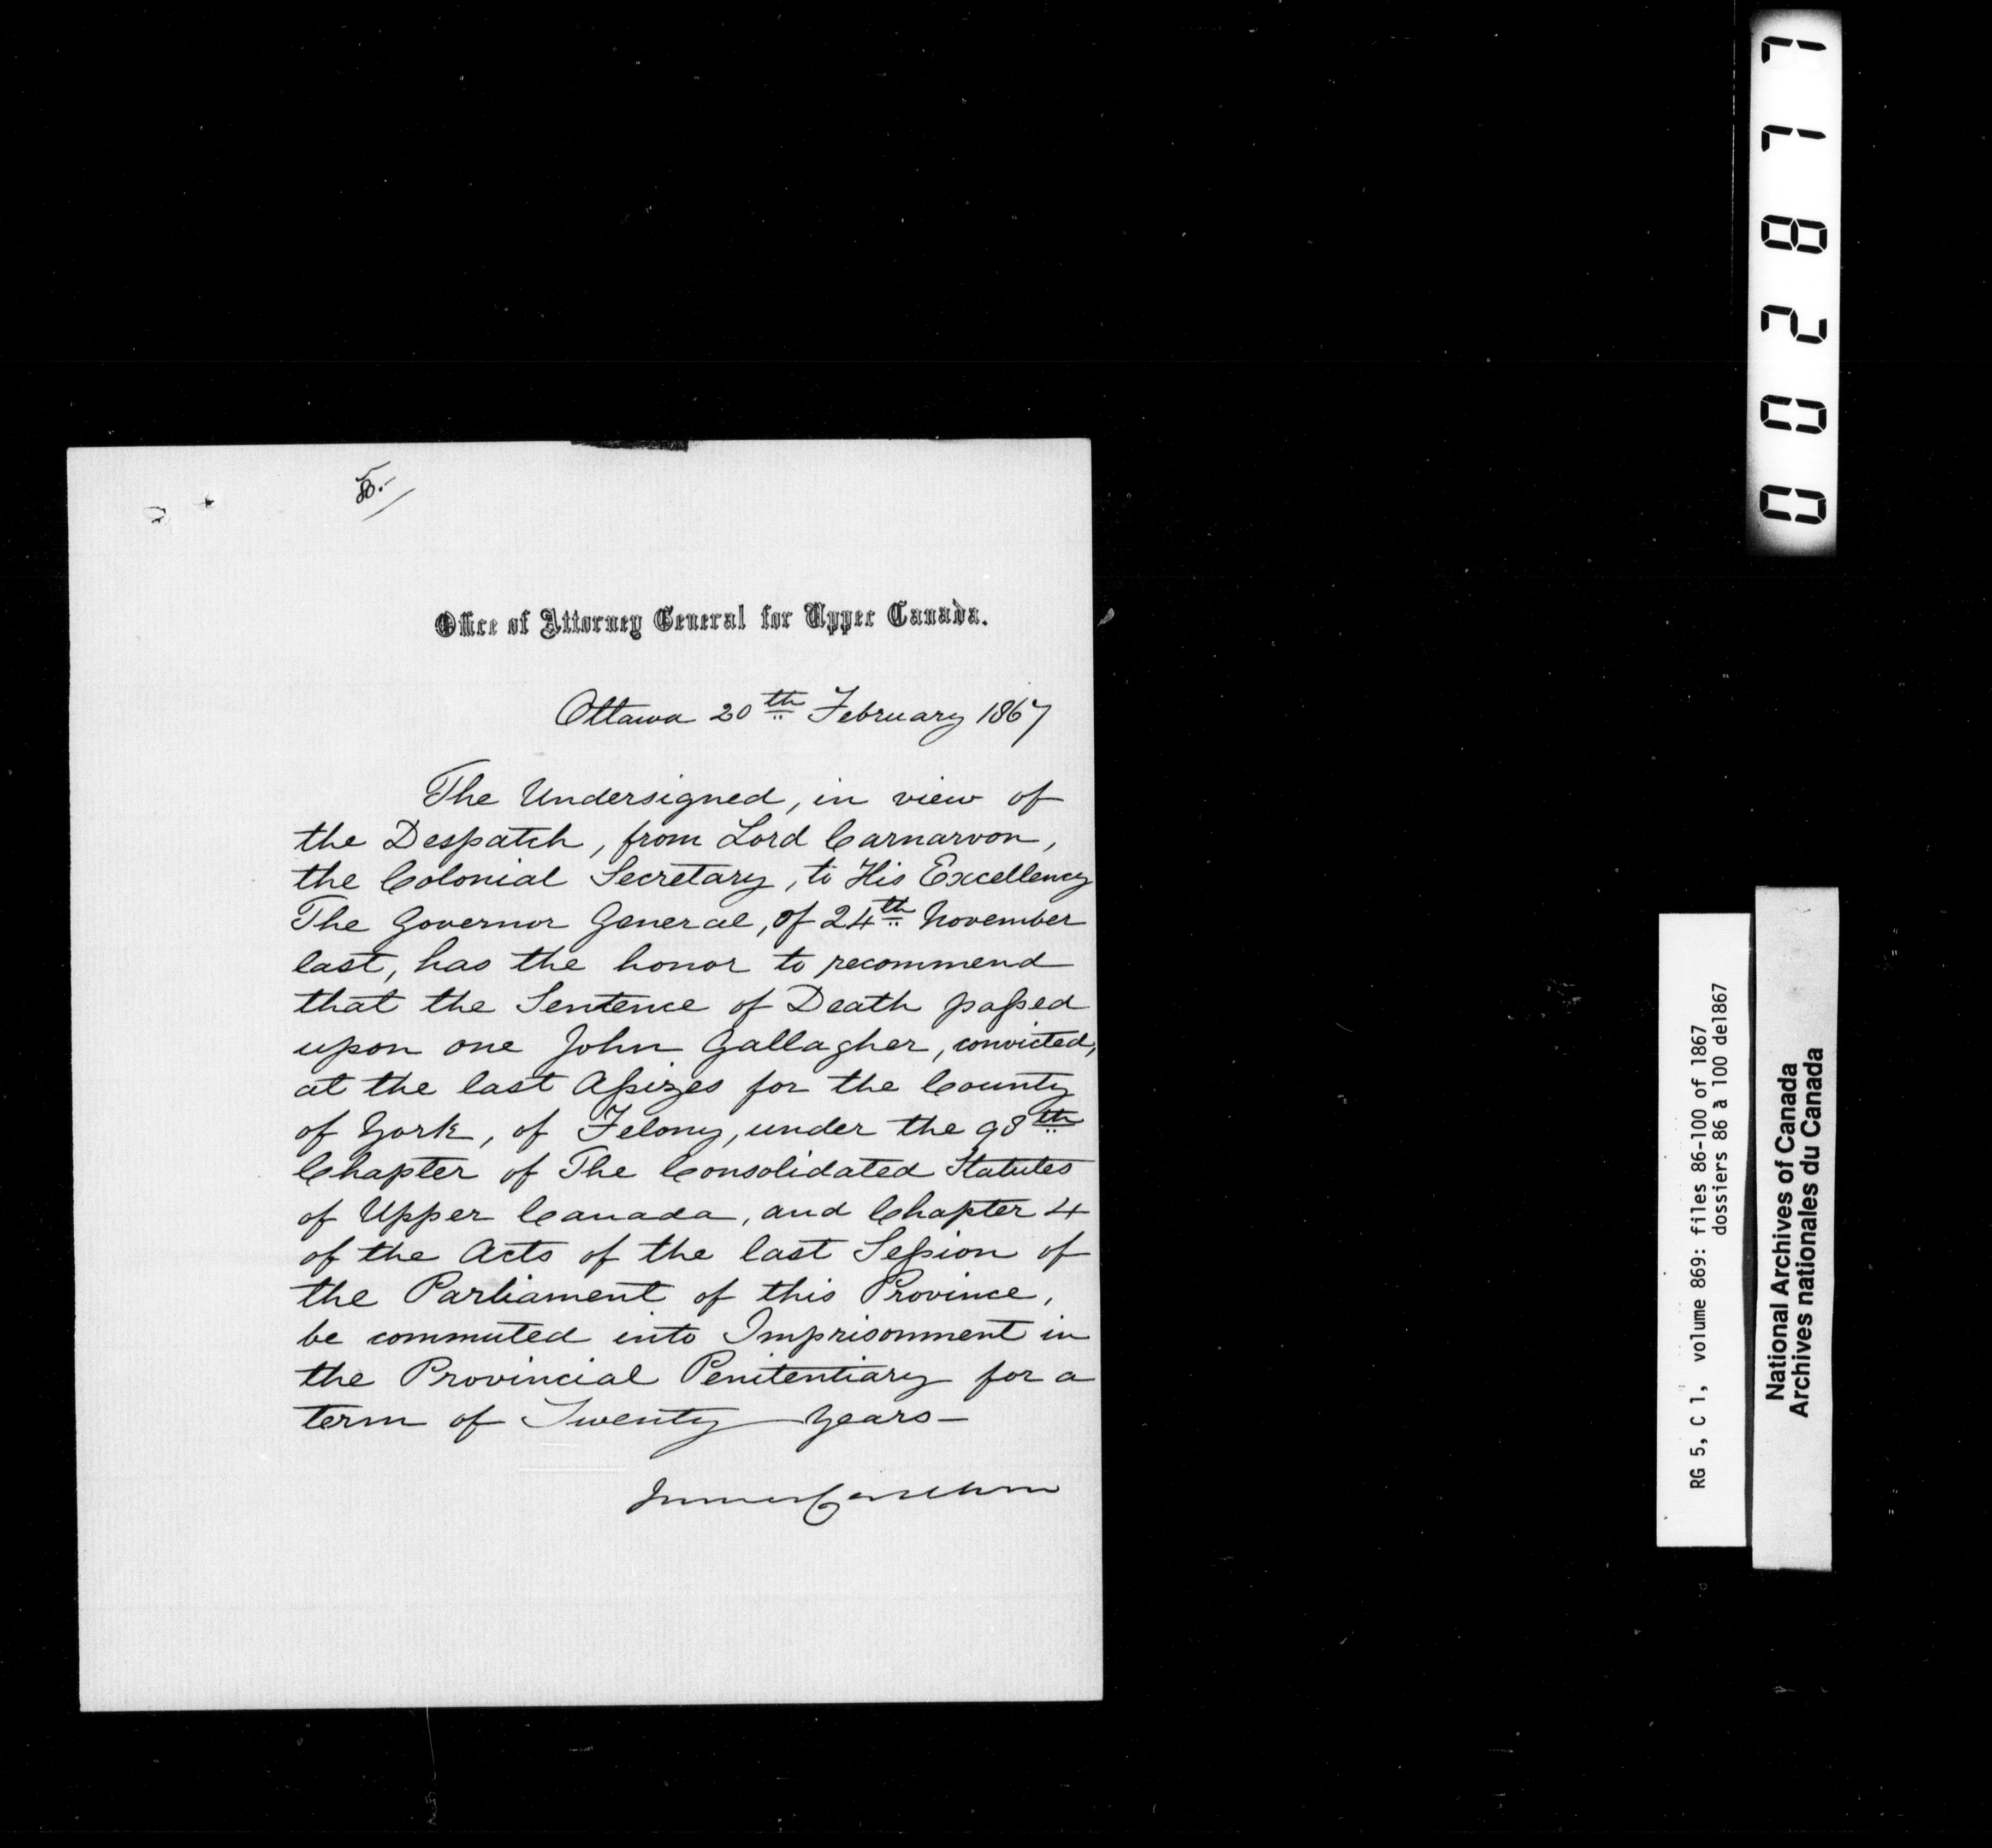 Office of Attorney General for Upper Canada.
Ottawa 20th February 1867
The Undersigned, in view of
the Despatch, from Lord Carnarvon,
the Colonial Secretary, to His Excellency
The Governor General, of 24th November
last, has the honor to recommend
that the Sentence of Death passed
upon one John Gallagher, convicted,
at the last Assizes for the County
of York, of Felony, under the 98th
Chapter of The Consolidated Statutes
of Upper Canada, and Chapter 4
of the Acts of the last Session of
the Parliament of this Province,
be commuted into Imprisonment in
the Provincial Penitentiary for a
term of Twenty Years—
002877
RG 5, C 1, volume 869: files 86-100 of 1867
dossiers 86 à 100 de1867
National Archives of Canada
Archives nationales du Canada